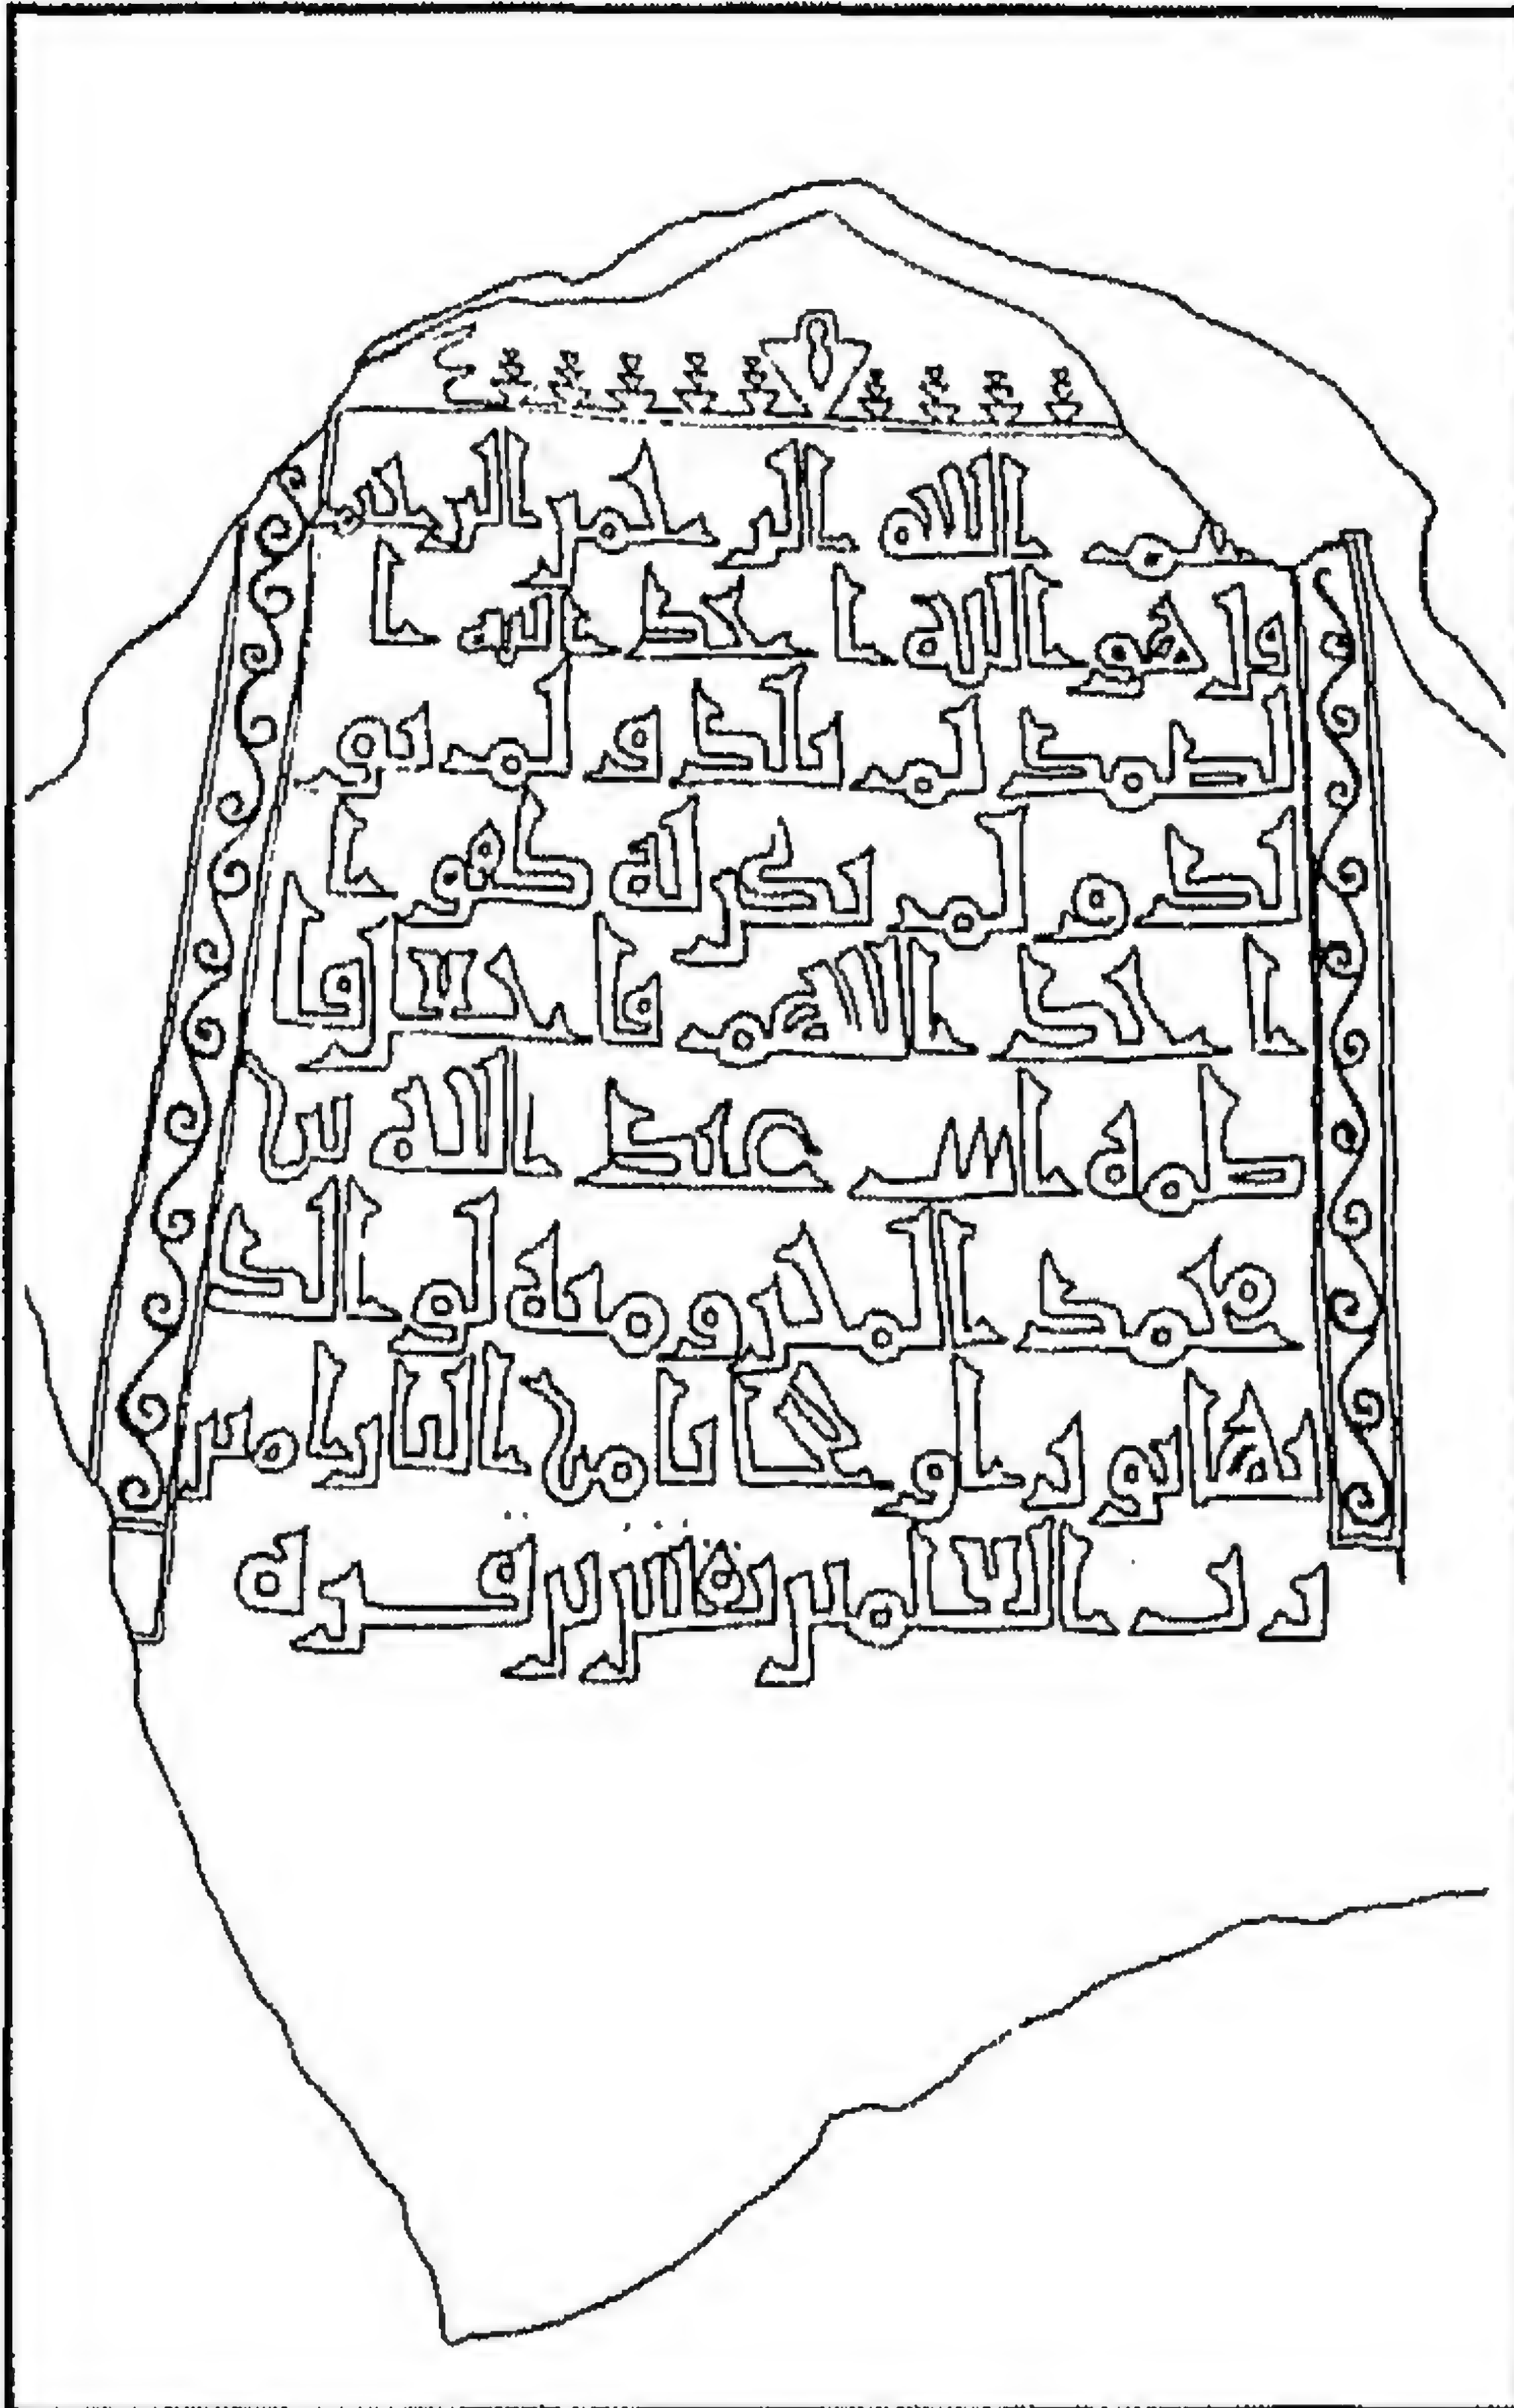 بسم الله الرحمن الرحيم
قل هو الله احد الله ا
لصمد لم يلد ولم يو
لد ولم يكن له كفوا
احد اللهم فاجعل فا
طمة ابنت عبد الله بن
محمد المخزومية لوالد
يها نورا وحجابا من النار امين
رب العلمين